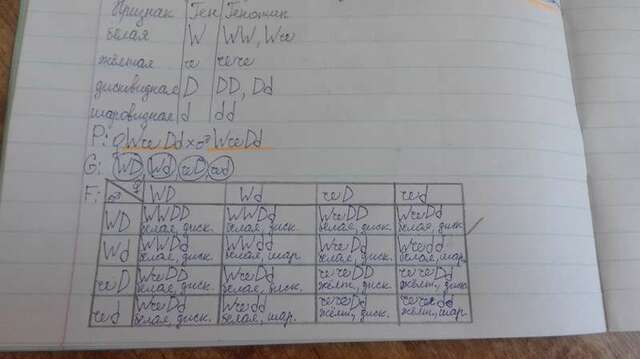 Признак Ген Генотип
белая W WW, Ww
жёлтая w ww
дисковидная D DD, Dd
шаровидная d dd
P: ♀WwDd x ♂WwDd
G: WD, Wd, wD, wd
F: ♂ ♀ WD Wd wD wd
WD WWDD WWDd WwDD WwDd
белая, диск. белая, диск. белая, диск. белая, диск.
Wd WWDd WWdd WwDd Wwdd
белая, диск. белая, шар. белая, диск. белая, шар.
wD WwDD WwDd wwDD wwDd
белая, диск. белая, диск. жёлт, диск. жёлт, диск.
wd WwDd Wwdd wwDd wwdd
белая, диск. белая, шар. жёлт, диск. жёлт, шар.